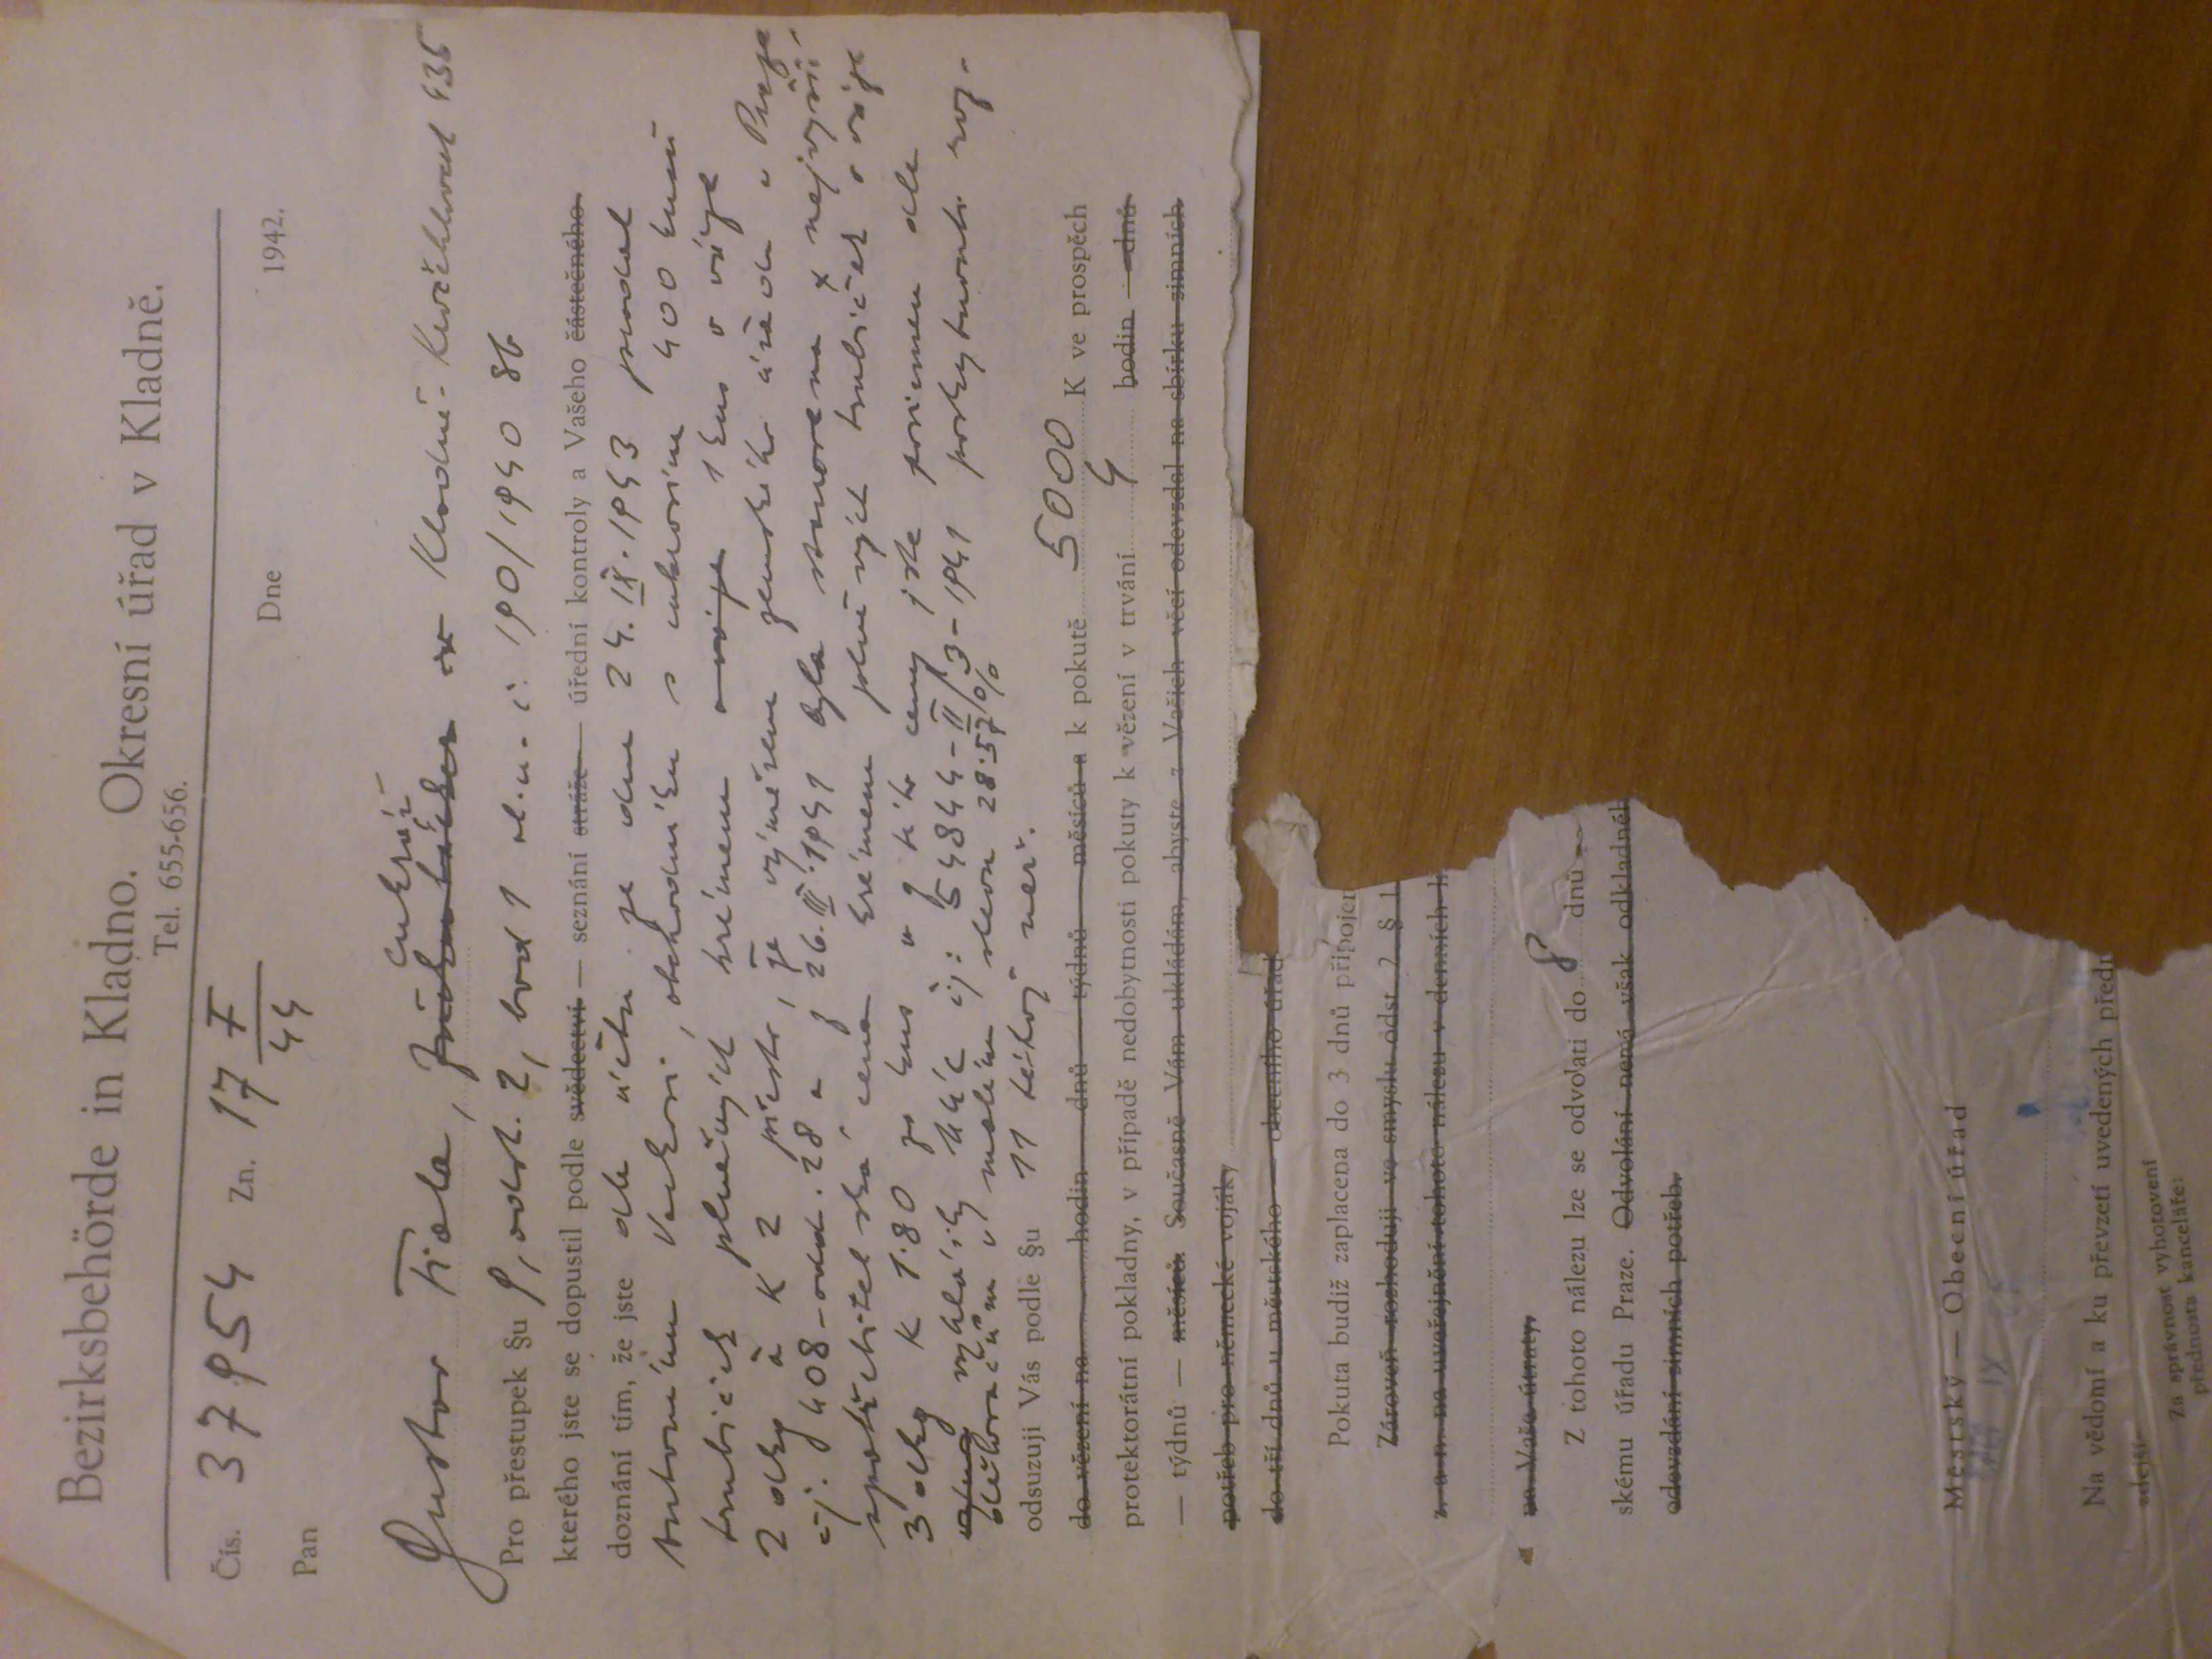 Bezirksbehörde in Kladno. Okresní úřad v Kladně.
Tel. 655-656.
Čís. 37954 Zn. 17 I/44
Dne 1942.
Pan
cukrář
Gustav Fiala, Zuckerbäcker Kladně - Kročehlavech 435
Pro přestupek §u 9, odst. 2, bod 1 vl. n. č. 190/1940 Sb
kterého jste se dopustil podle svědectví — seznání stráže — úřední kontroly a Vašeho částečného
doznání tím, že jste dle účtu ze dne 24. IX. 1943 prodal
Antonínu Vackovi, obchodníku s cukrovím 400 kusů
trubiček plněných krémem o váze 1 kus o váze
2 dkg à K 2 přesto, že výměrem zemského úřadu v Praze
čj. 408-odd. 28 a z 26. III. 1941 byla stanovena nejvyšší
spotřebitelská cena krémem plněných trubiček o váze
3 dkg K 1·80 za kus a z této ceny jste povinnen dle
vyhlášky čj: 54844-II/3-1941 poskytnouti roz-
dělovačům v malém slevu 28·57%
odsuzuji Vás podle §u 11 téhož nař.
do vězení na hodin dnů týdnů měsíců a k pokutě 5000 K ve prospěch
protektorátní pokladny, v případě nedobytnosti pokuty k vězení v trvání 4 hodin — dnů
— týdnů — měsíců. Současně Vám ukládám, abyste z Vašich věcí odevzdal na sbírku zimních
potřeb pro německé vojáky
do tří dnů u městského — obecního úřad
Pokuta budiž zaplacena do 3 dnů připojen
Zároveň rozhoduji ve smyslu odst. 2 § 1
z. a n. na uveřejnění tohoto nálezu v denních li
na Vaše útraty.
Z tohoto nálezu lze se odvolati do 8 dnů —
skému úřadu Praze. Odvolání nemá však odkladnéh
odevzdání zimních potřeb.
Městský — Obecní úřad
Na vědomí a ku převzetí uvedených předm
zdejší
Za správnost vyhotovení
přednosta kanceláře: